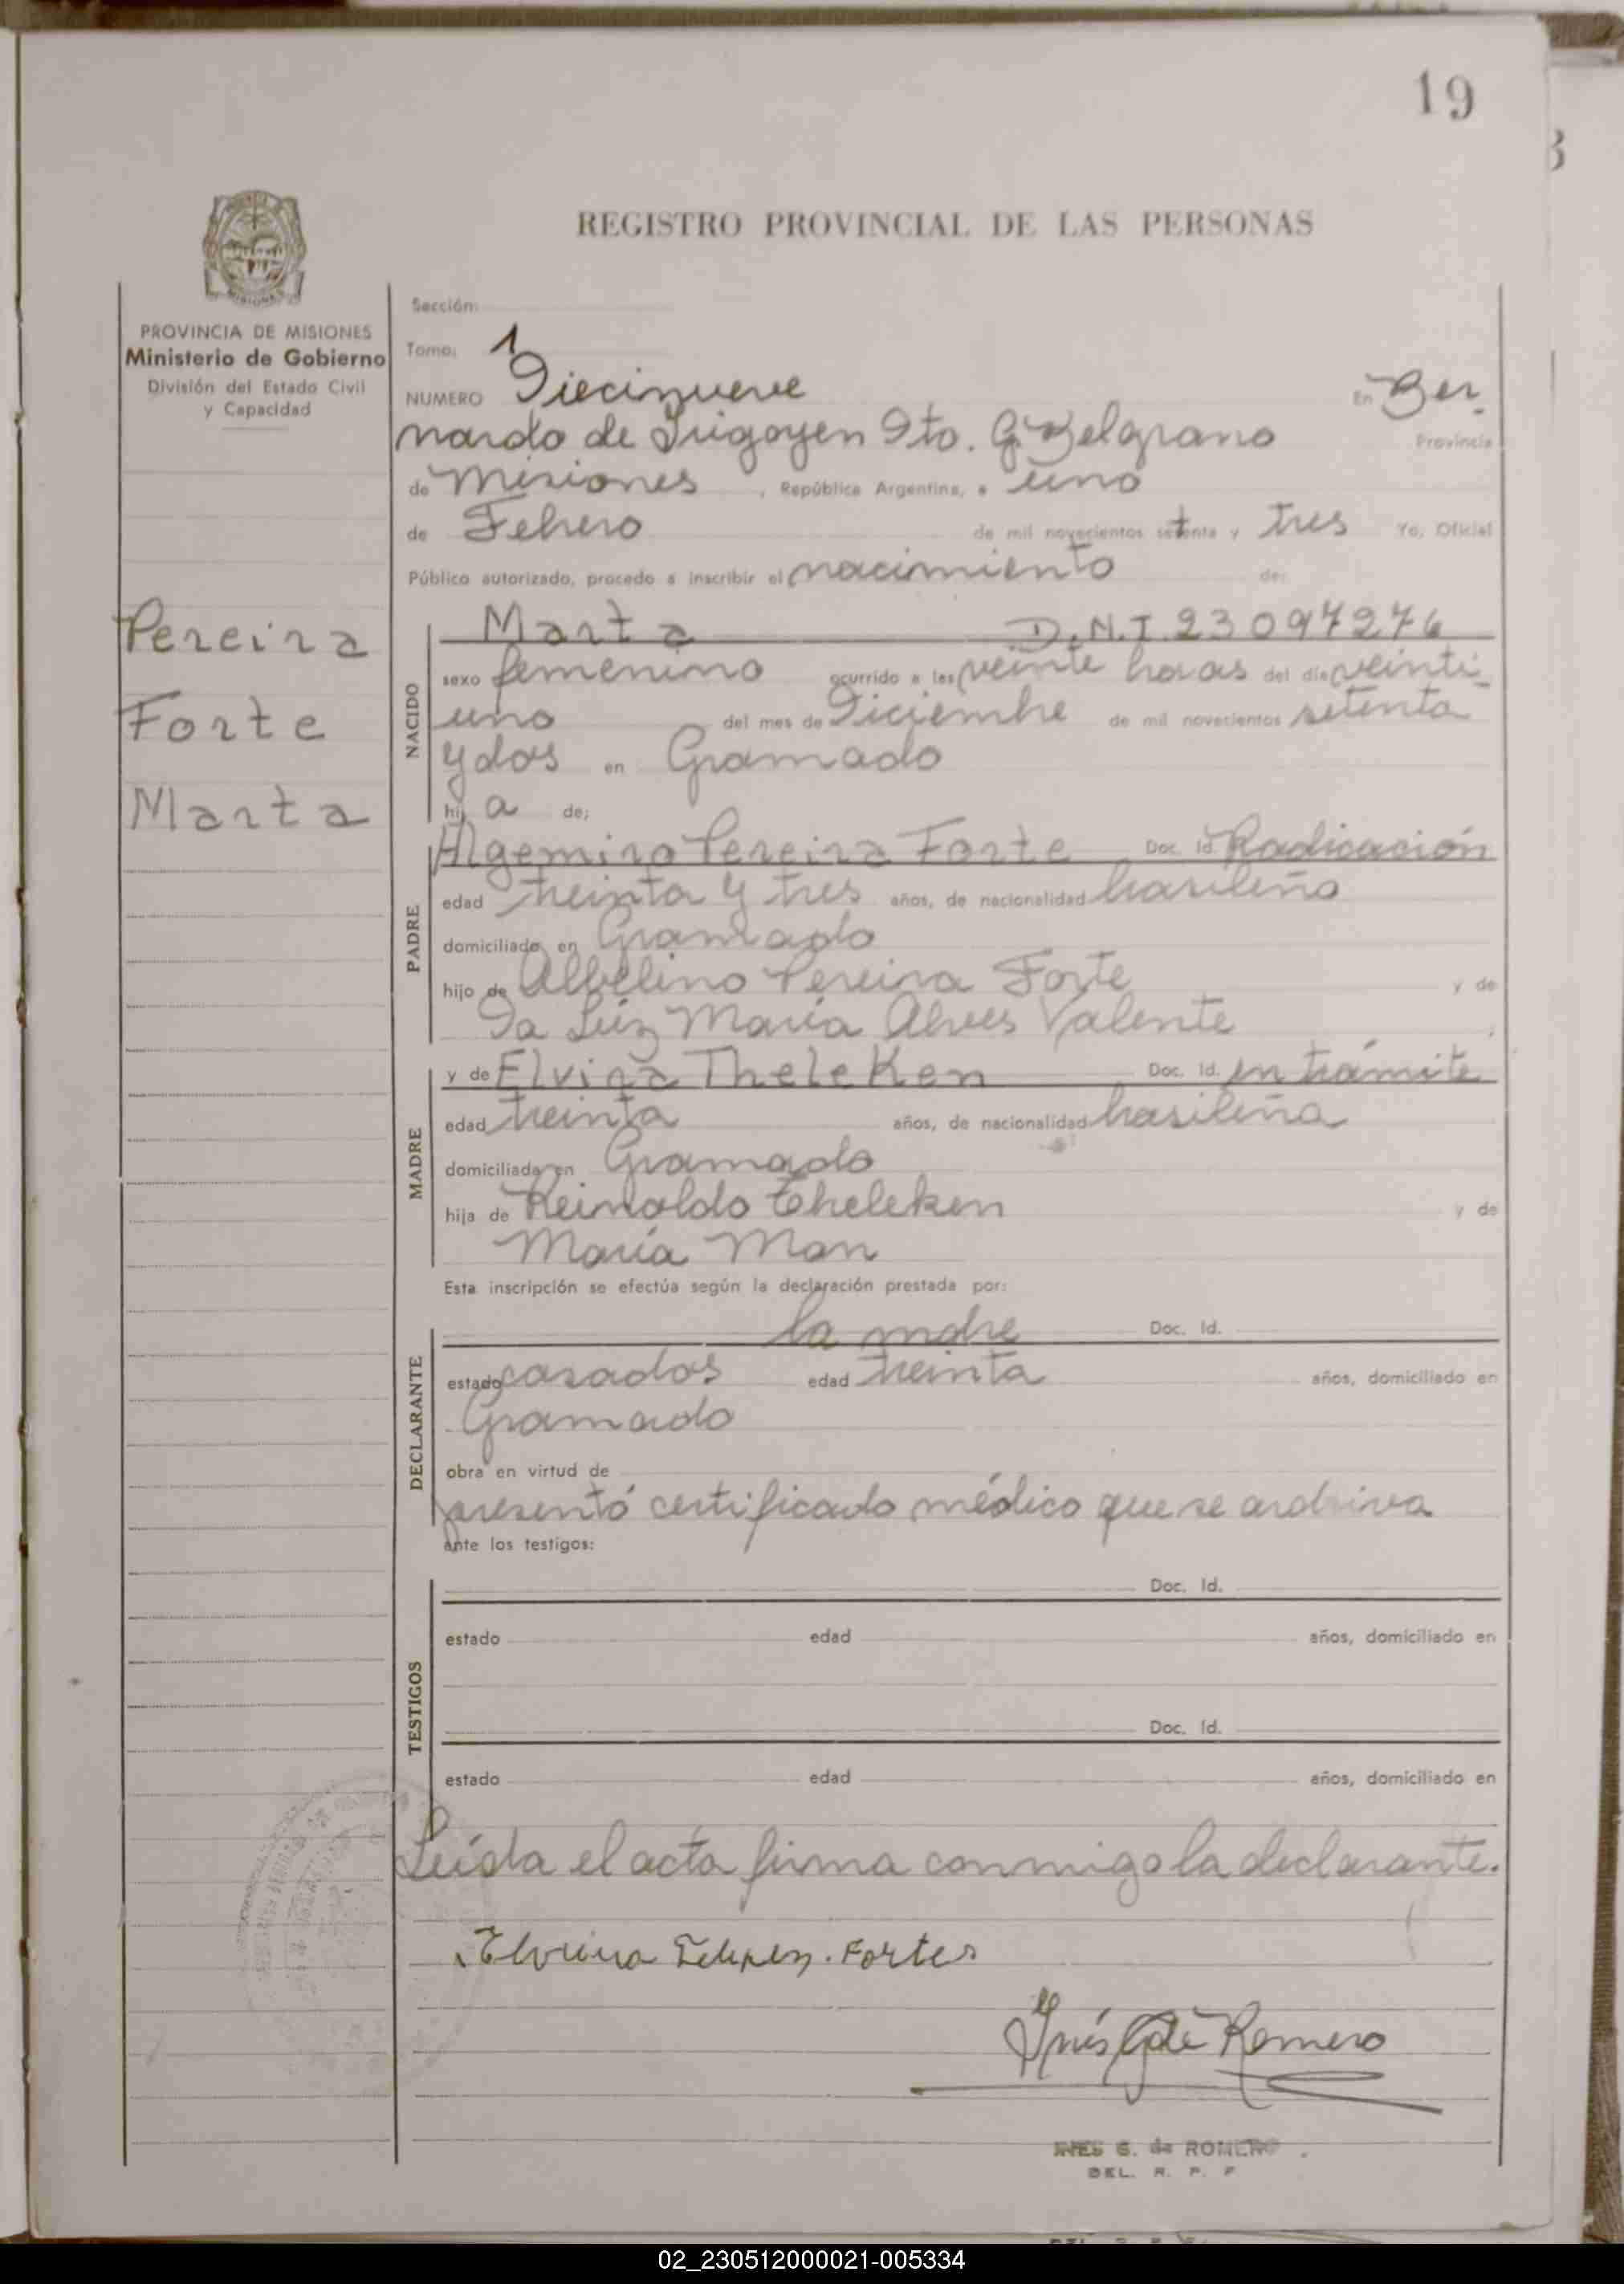 19
REGISTRO PROVINCIAL DE LAS PERSONAS
PROVINCIA DE MISIONES
Ministerio de Gobierno
División del Estado Civil
y Capacidad
Pereira
Forte
Marta
Sección:
Tomo: 1
NUMERO Diecinueve En Ber
nardo de Irigoyen Dto. G. Belgrano Provincia
de Misiones, República Argentina, a uno
de Febrero de mil novecientos setenta y tres Yo, Oficial
Público autorizado, procedo a inscribir el nacimiento de:
NACIDO
Marta D.N.I. 23 097276
sexo femenino ocurrido a las veinte horas del día veinti
uno del mes de Diciembre de mil novecientos setenta
y dos en Gramado
hij a de;
PADRE
Algemiro Pereira Forte Doc. Id. Radicación
edad treinta y tres años, de nacionalidad brasileño
domiciliado en Gramado
hijo de Albelino Pereira Forte y de
Da Luz María Alves Valente ;
MADRE
y de Elvira Theleken Doc. Id. en trámite
edad treinta años, de nacionalidad brasileña
domiciliada en Gramado
hija de Reinoldo Theleken y de
María Man
Esta inscripción se efectúa según la declaración prestada por:
DECLARANTE
la mdre Doc. Id.
estado casados edad treinta años, domiciliado en
Gramado
obra en virtud de
presentó certificado médico que se archiva
ante los testigos:
TESTIGOS
Doc. Id.
estado edad años, domiciliado en
Doc. Id.
estado edad años, domiciliado en
Leída el acta firma conmigo la declarante.
Fortes
Inés G de Romero
INES G. de ROMERO
DEL. R. P. P
02_230512000021-005334